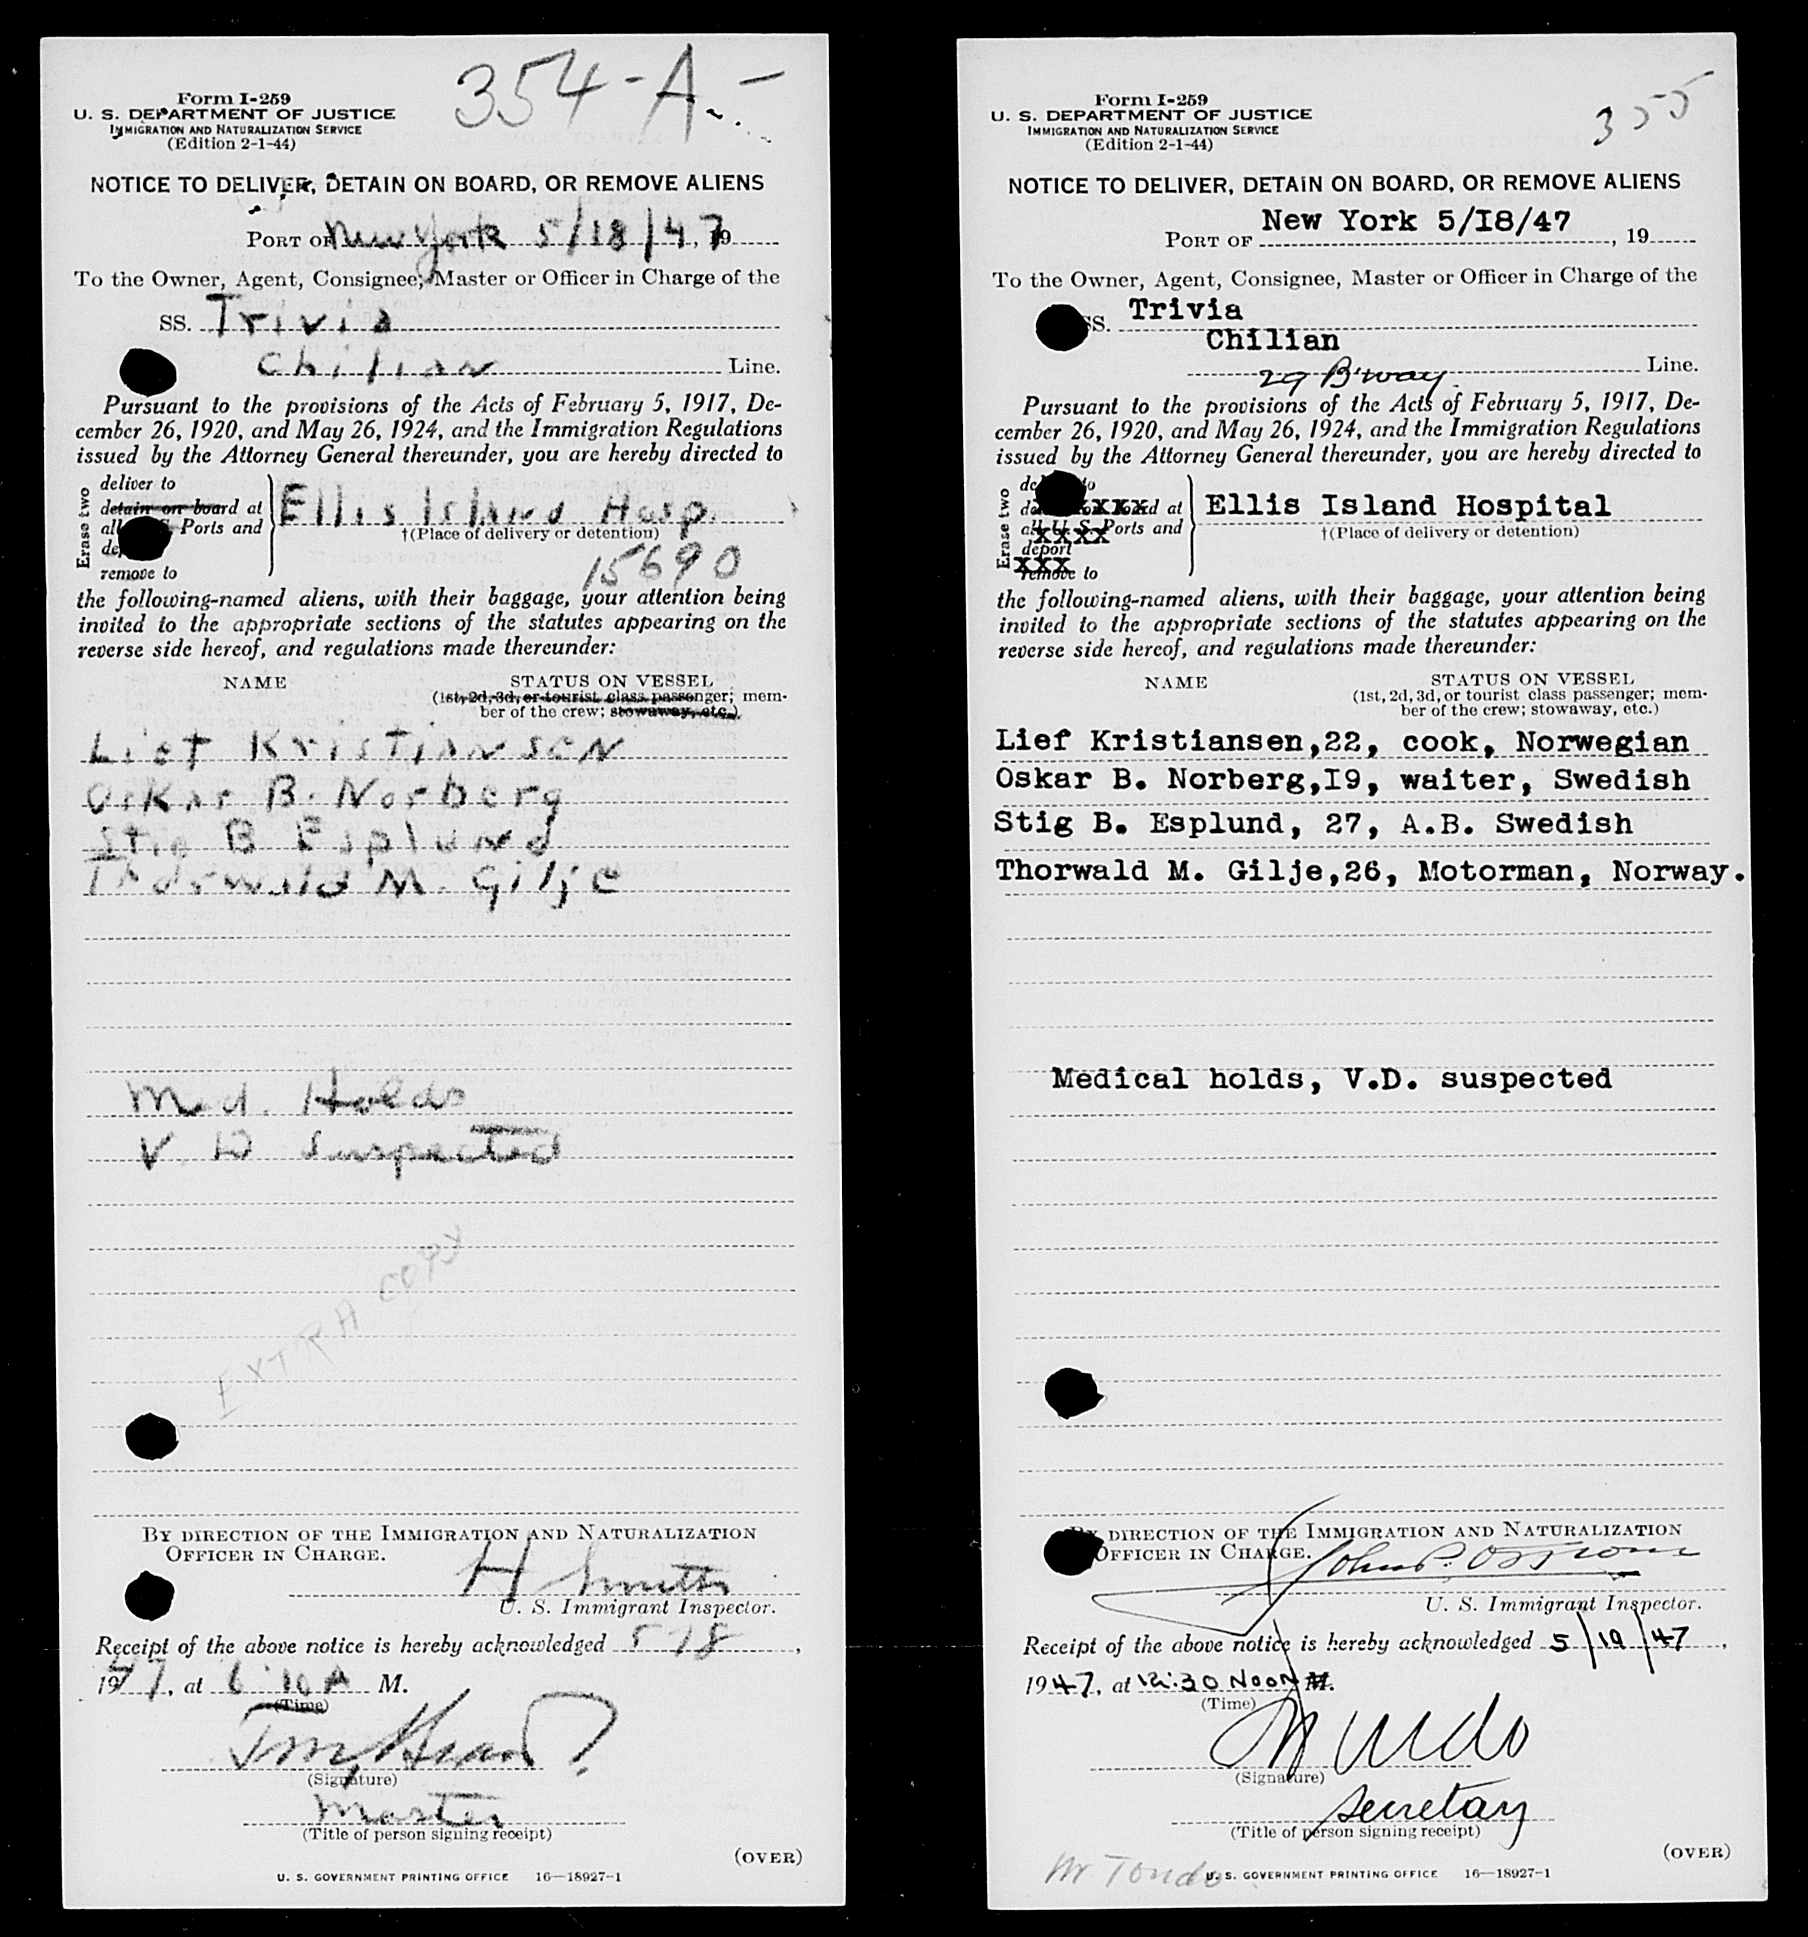 354-A.-
Form I-259
U. S. DEPARTMENT OF JUSTICE
IMMIGRATION AND NATURALIZATION SERVICE
(Edition 2-1-44)
NOTICE TO DELIVER, DETAIN ON BOARD, OR REMOVE ALIENS
PORT OF New York 5/18/47, 19
To the Owner, Agent, Consignee, Master or Officer in Charge of the
SS. Trivia
Chilian Line.
Pursuant to the provisions of the Acts of February 5, 1917, De-
cember 26, 1920, and May 26, 1924, and the Immigration Regulations
issued by the Attorney General thereunder, you are hereby directed to
Erase two
deliver to
detain on board at
all Ports and
remove to
Ellis Island Hosp.
†(Place of delivery or detention)
15690
the following-named aliens, with their baggage, your attention being
invited to the appropriate sections of the statutes appearing on the
reverse side hereof, and regulations made thereunder:
NAME STATUS ON VESSEL
(1st, 2d, 3d, or tourist class passenger; mem-
ber of the crew; stowaway, etc.)
Lief Kristiansen
Oskar B. Norberg
Stig B Esplund
Thorwald M. Gilje
Med. Holds
V D Suspected
EXTRA COPY
BY DIRECTION OF THE IMMIGRATION AND NATURALIZATION
OFFICER IN CHARGE.
H Smith
U. S. Immigrant Inspector.
Receipt of the above notice is hereby acknowledged 5 18,
1947, at 6:10 A M.
(Time)
(Signature)
Master
(Title of person signing receipt)
(OVER)
U. S. GOVERNMENT PRINTING OFFICE 16—18927-1
355
Form I-259
U. S. DEPARTMENT OF JUSTICE
IMMIGRATION AND NATURALIZATION SERVICE
(Edition 2-1-44)
NOTICE TO DELIVER, DETAIN ON BOARD, OR REMOVE ALIENS
PORT OF New York 5/I8/47, 19
To the Owner, Agent, Consignee, Master or Officer in Charge of the
SS. Trivia
Chilian
29 B'way. Line.
Pursuant to the provisions of the Acts of February 5, 1917, De-
cember 26, 1920, and May 26, 1924, and the Immigration Regulations
issued by the Attorney General thereunder, you are hereby directed to
Erase two
to
at
all U. S. Ports and
deport
remove to
Ellis Island Hospital
†(Place of delivery or detention)
the following-named aliens, with their baggage, your attention being
invited to the appropriate sections of the statutes appearing on the
reverse side hereof, and regulations made thereunder:
NAME STATUS ON VESSEL
(1st, 2d, 3d, or tourist class passenger; mem-
ber of the crew; stowaway, etc.)
Lief Kristiansen,22, cook, Norwegian
Oskar B. Norberg,I9, waiter, Swedish
Stig B. Esplund, 27, A.B. Swedish
Thorwald M. Gilje,26, Motorman, Norway.
Medical holds, V.D. suspected
BY DIRECTION OF THE IMMIGRATION AND NATURALIZATION
OFFICER IN CHARGE.
U. S. Immigrant Inspector.
Receipt of the above notice is hereby acknowledged 5/19/47,
1947, at 12:30 Noon M.
(Time)
(Signature)
Secretary
(Title of person signing receipt)
(OVER)
Mr Tondo
U. S. GOVERNMENT PRINTING OFFICE 16—18927-1